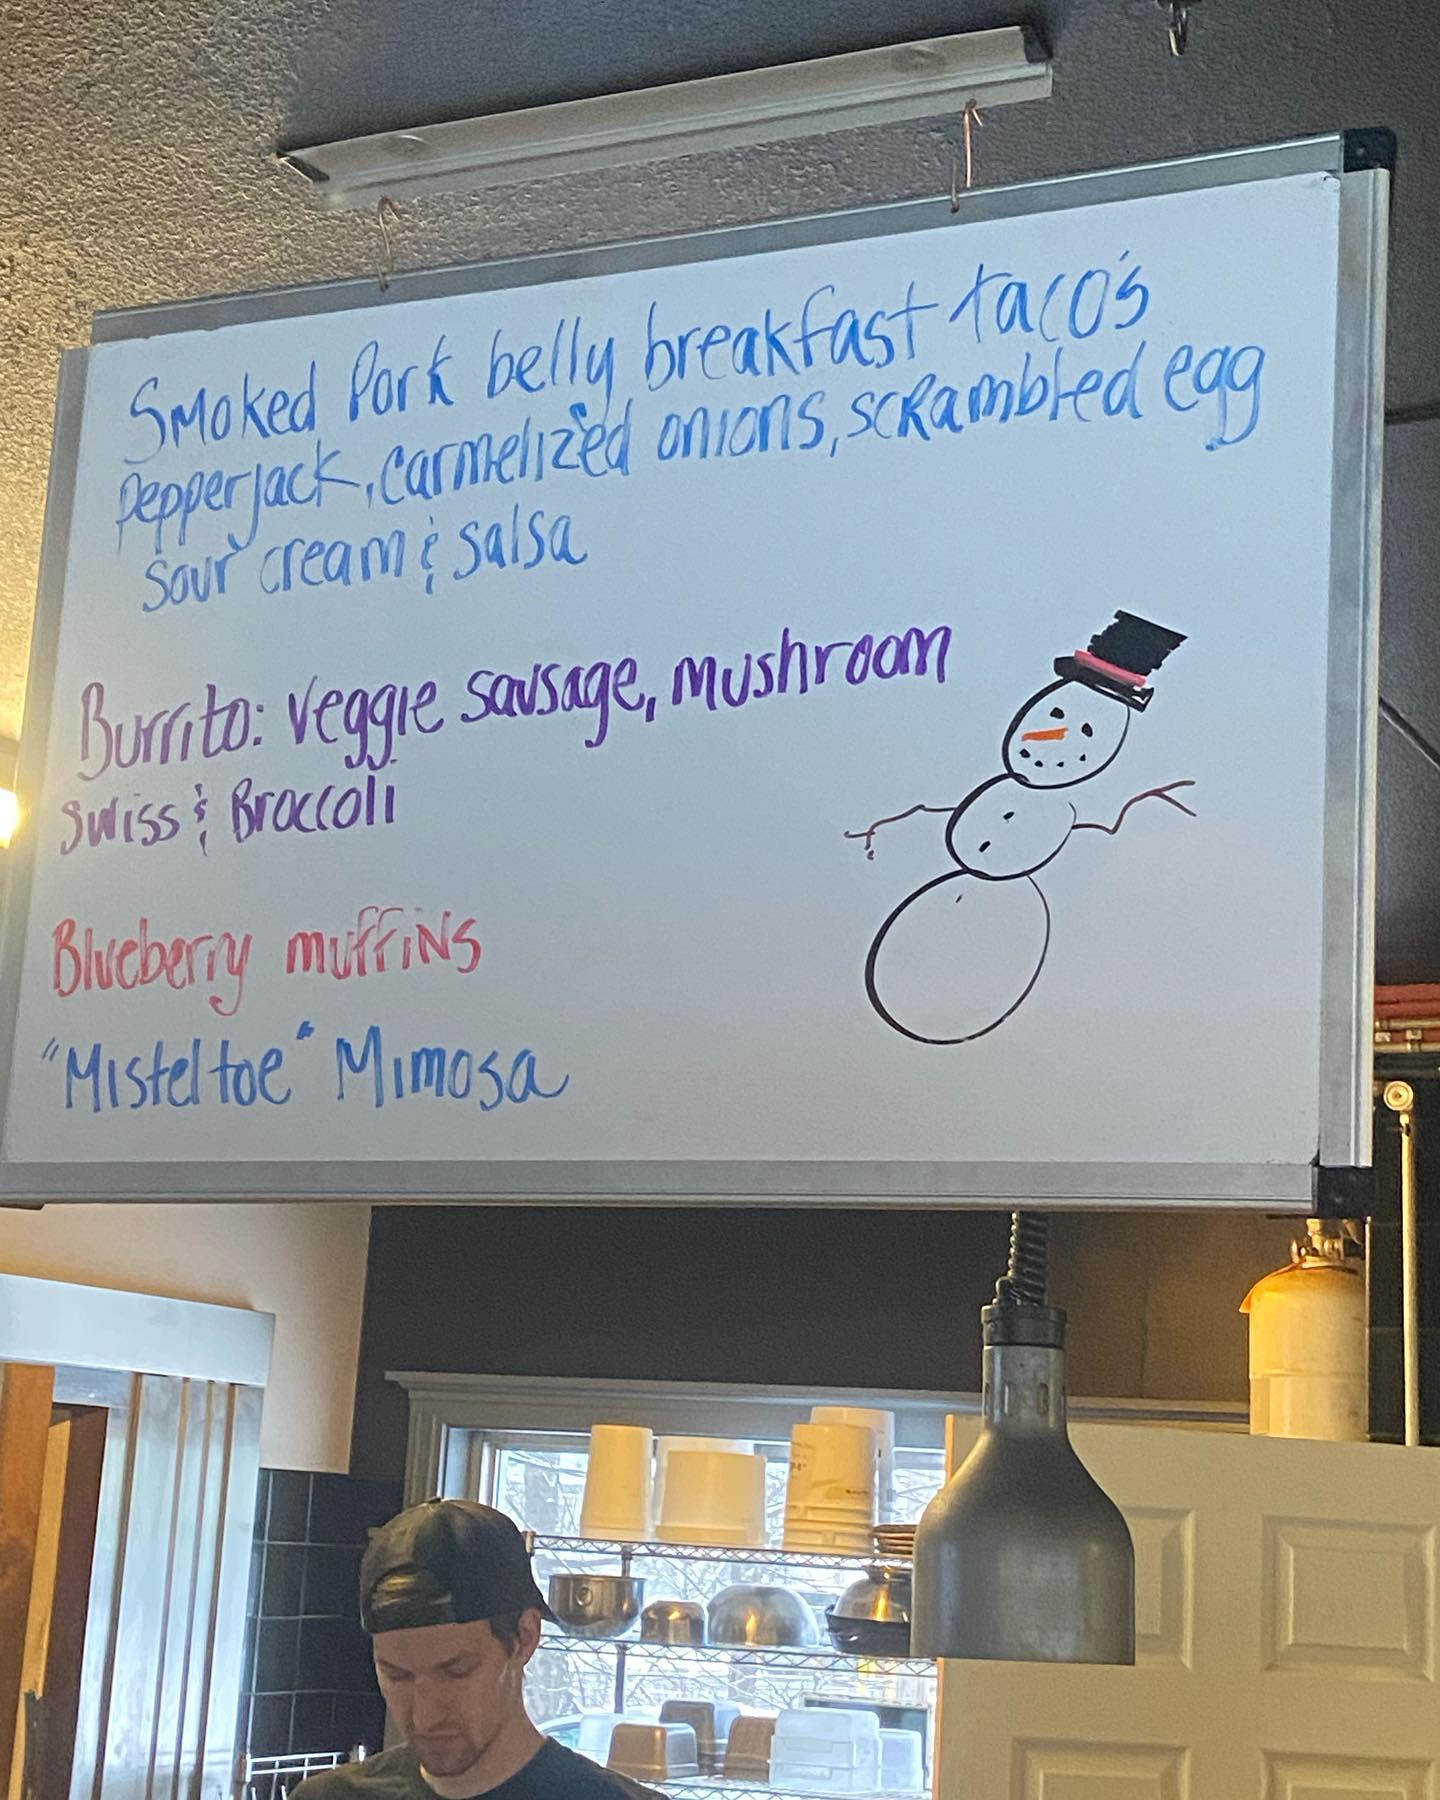 Smoked Pork belly breakfast taco's
Pepperjack, carmelized onions, scrambled egg
sour cream & salsa
Burrito: veggie sausage, mushroom
swiss & Broccoli
Blueberry muffins
"Misteltoe" Mimosa